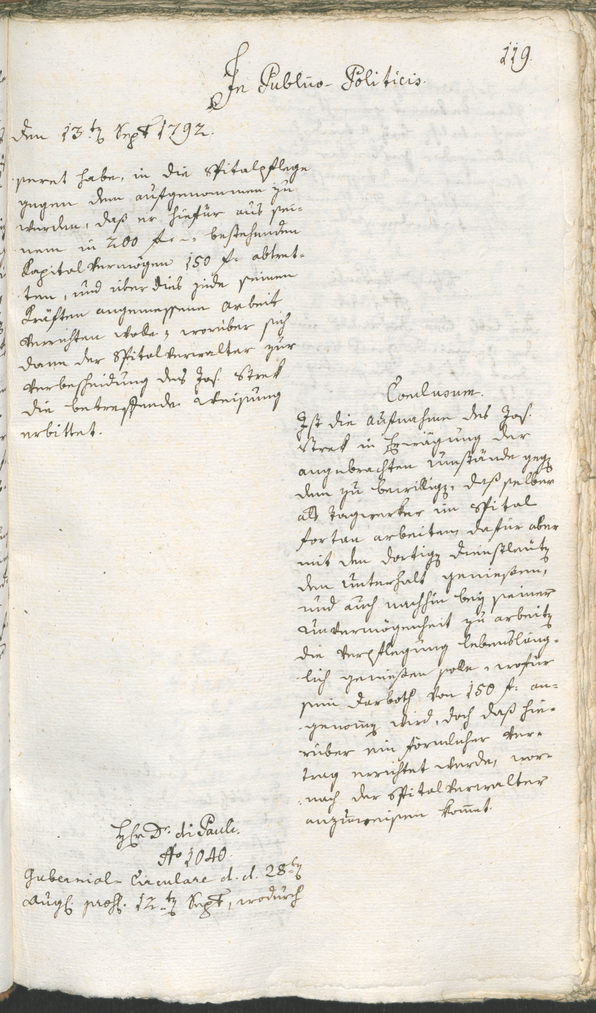 119.
In Publico-Politicis.
Den 13t Sept 1792.
seret habe, in die Spitalpflege
gegen dem aufgenommen zu
werden, daß er hiefür aus sei-
nem in 200 f. -, bestehenden
Kapitalvermögen 150 f. abtret-
ten, und über dies jede seinen
Kräften angemessene Arbeit
verrichten wolle; worüber sich
dann der Spitalverwalter zur
Verbescheidung des Jos. Strek
die betreffende Weisung
erbittet.
Conclusum.
Ist die Aufnahme des Jos.
Strek in Erwägung der
angebrachten Umstände geg
dem zu bewillig, daß selber
als Tagwerker im Spital
fortan arbeiten, dafür aber
mit den dortig Dienstleut
den Unterhalt genießen,
und auch nachhin bey seiner
Unvermögenheit zu arbeit
die Verpflegung lebensläng-
lich genießen solle, wofür
sein Darboth von 150 f. an-
genom wird, doch daß hie-
rüber ein förmlicher Ver-
trag errichtet werde, wor-
nach der Spitalverwalter
anzuweisen kommt.
H Dr. di Pauli.
No 1040.
Gubernial-Circulare d. d. 28t
Aug. 12t Sept, wodurch